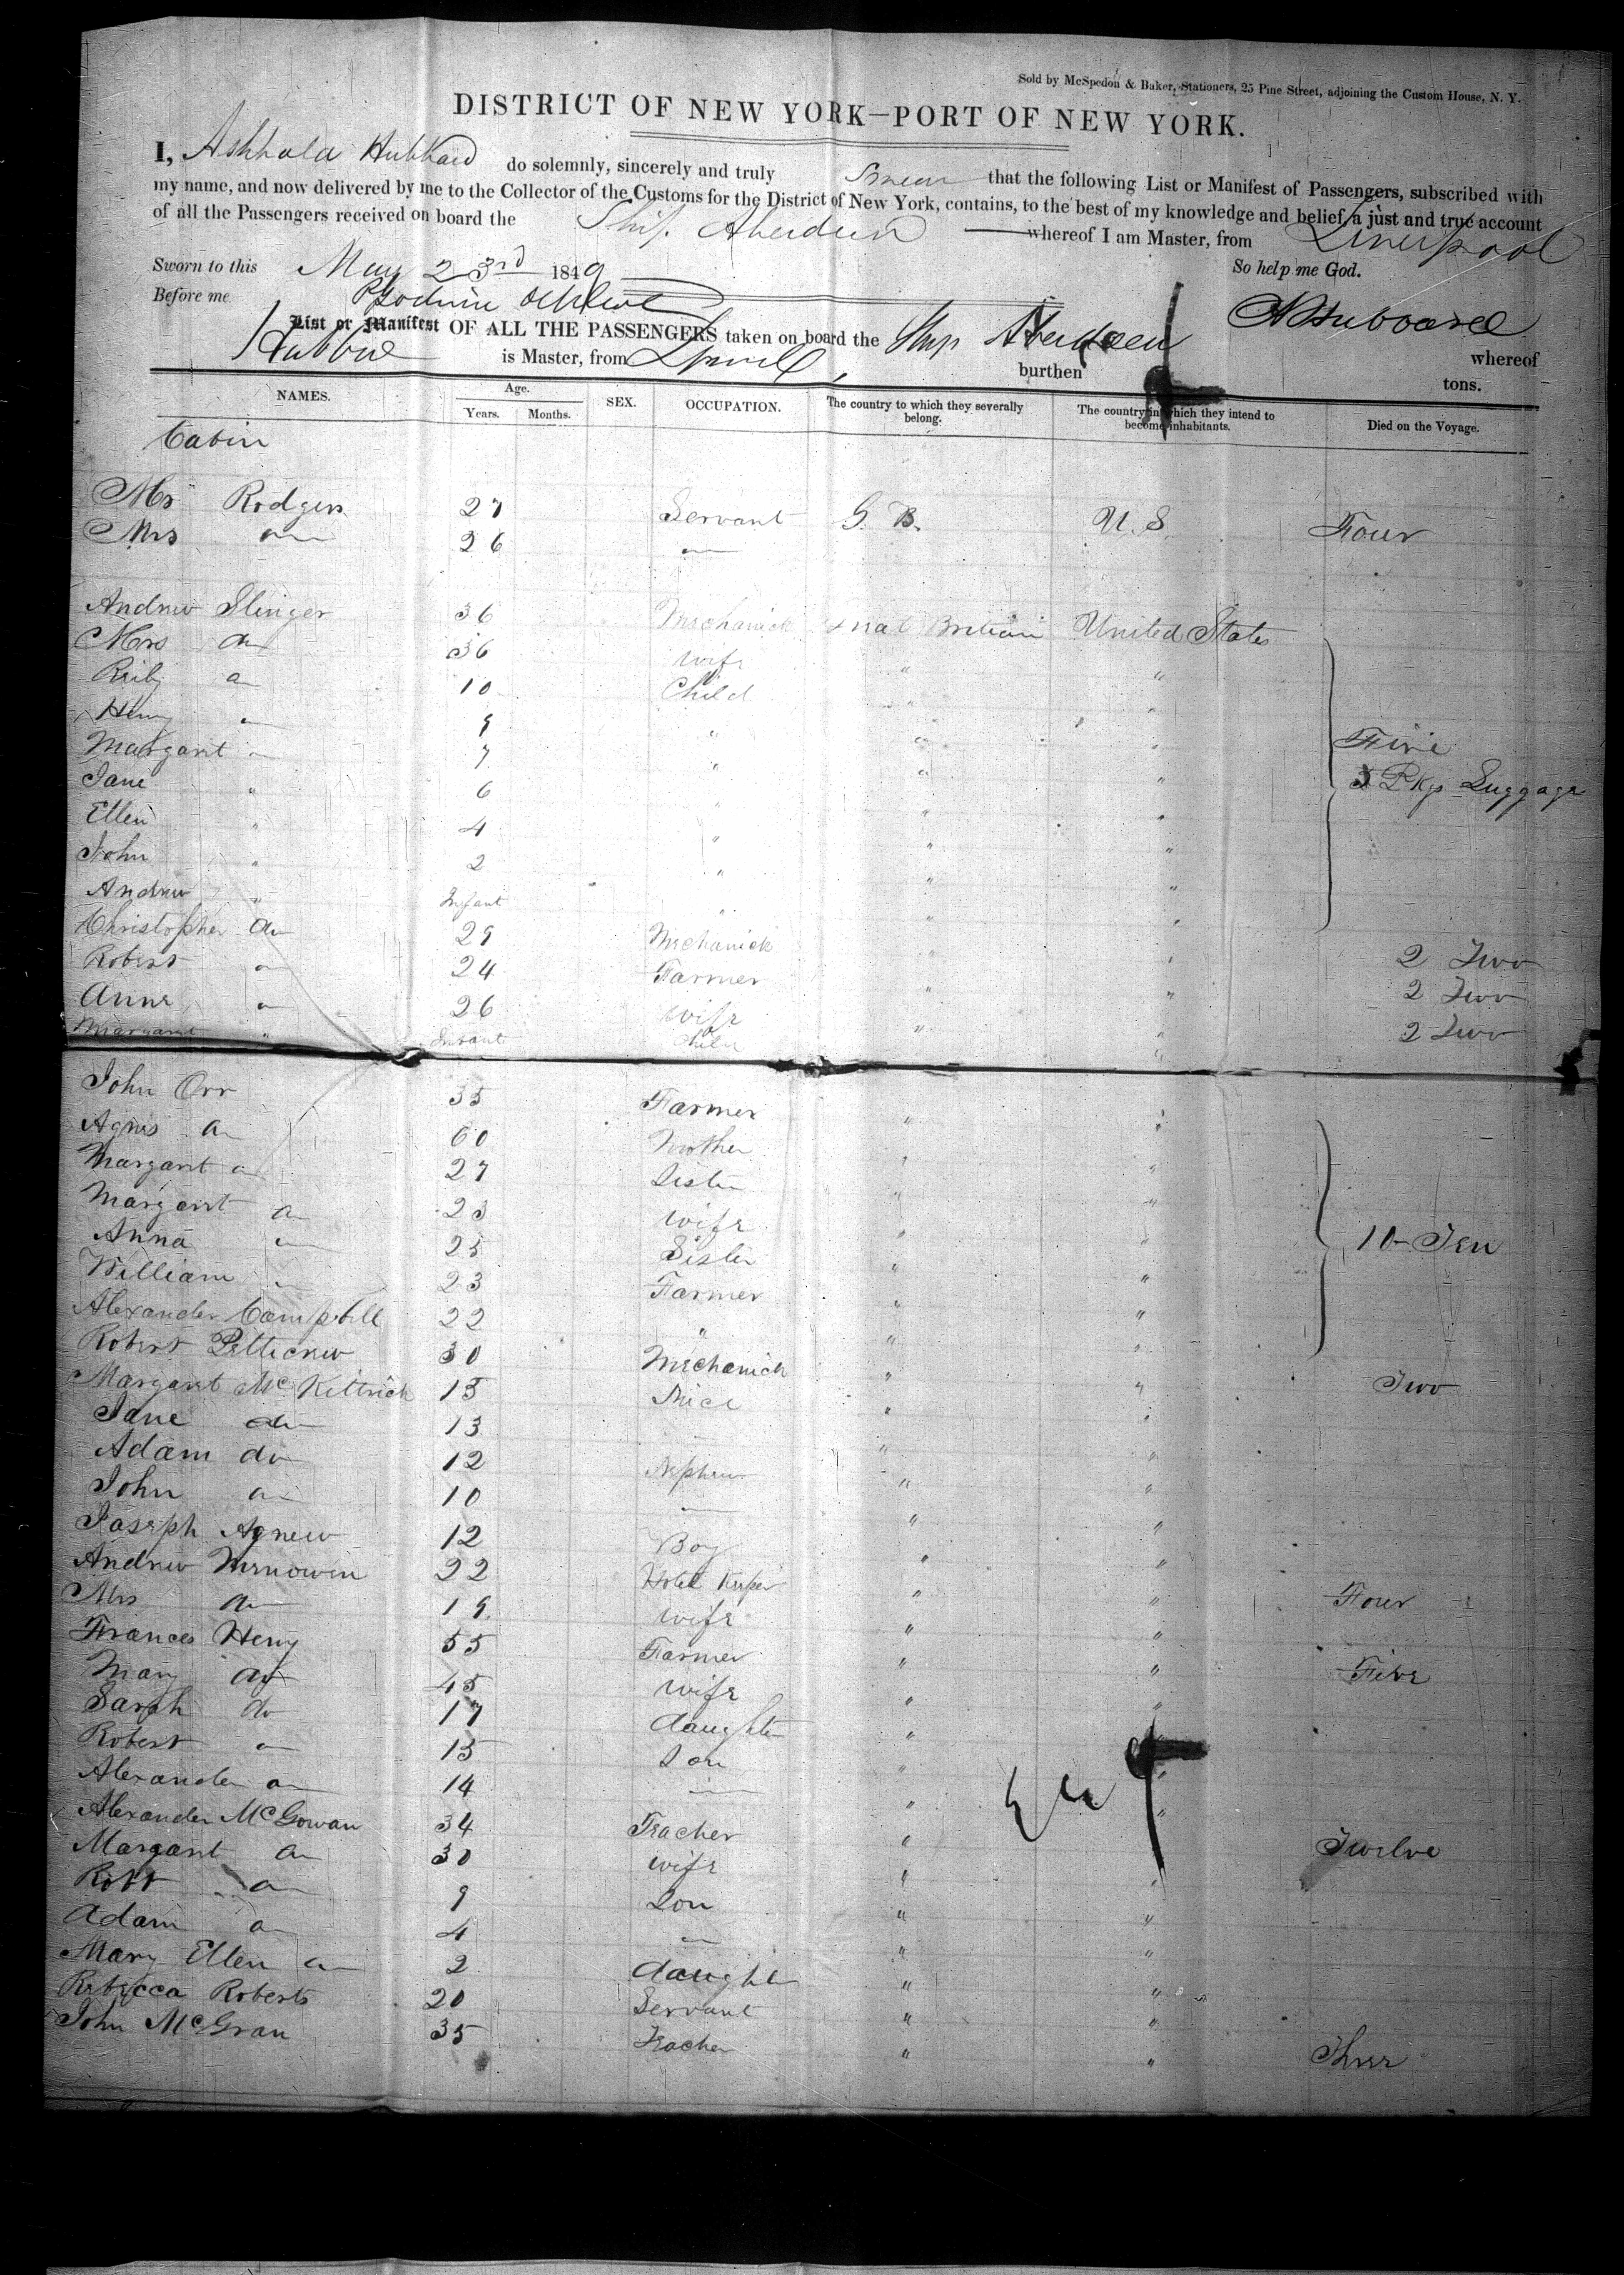 Sold by McSpedon & Baker, Stationers, 25 Pine Street, adjoining the Custom House, N. Y.
DISTRICT OF NEW YORK—PORT OF NEW YORK.
I, Ashbald Hubbard do solemnly, sincerely and truly swear that the following List or Manifest of Passengers, subscribed with
my name, and now delivered by me to the Collector of the Customs for the District of New York, contains, to the best of my knowledge and belief, a just and true account
of all the Passengers received on board the Ship Aberdeen whereof I am Master, from Liverpool
Sworn to this May 23rd 1849 So help me God.
Before me A Hubbard
List or Manifest OF ALL THE PASSENGERS taken on board the Ship Aberdeen whereof
is Master, from burthen tons.
NAMES. Age. Years. Months. SEX. OCCUPATION. The country to which they severally belong. The country in which they intend to become inhabitants. Died on the Voyage.
Cabin
Mr Rodgers 27 Servant G. B. U. S. Four
Mrs do 26 do
Andrew Slinger 36 Mechanick Great Britain United States
Mrs do 36 wife " "
do 10 Child " "
Henry do 9 " " "
Margaret do 7 " " " Five
Jane " 6 " " " 5 Pkgs Luggage
Ellen " 4 " " "
John " 2 " " "
Andrew " Infant " " "
Christopher do 29 Mechanick " " 2 Two
Robert do 24 Farmer " " 2 Two
Anne do 26 wife " " 2 Two
Margaret " Infant Child "
John Orr 35 Farmer " "
Agnes do 60 Mother " "
Margaret do 27 Sister " "
Margaret do 23 wife " "
Anna do 25 Sister " " 10 – Ten
William do 23 Farmer " "
Alexander Campbell 22 " " "
Robert Petticrew 30 Mechanick " "
Margaret McKittrick 15 Niece " " Two
Jane do 13 " "
Adam do 12 Nephew " "
John do 10 do " "
Joseph Agnew 12 Boy " "
Andrew 22 Hotel Keeper " " Four
Mrs do 19 wife " "
Frances Henry 55 Farmer " " Five
Mary do 45 wife " "
Sarah do 17 daughter " "
Robert do 15 Son " "
Alexander do 14 do " "
Alexander McGowan 34 Teacher " " Twelve
Margaret do 30 wife " "
Robt do 9 Son " "
Adam do 4 do " "
Mary Ellen do 2 daughter " "
Rebecca Roberts 20 Servant " "
John McGran 35 Teacher " " Three